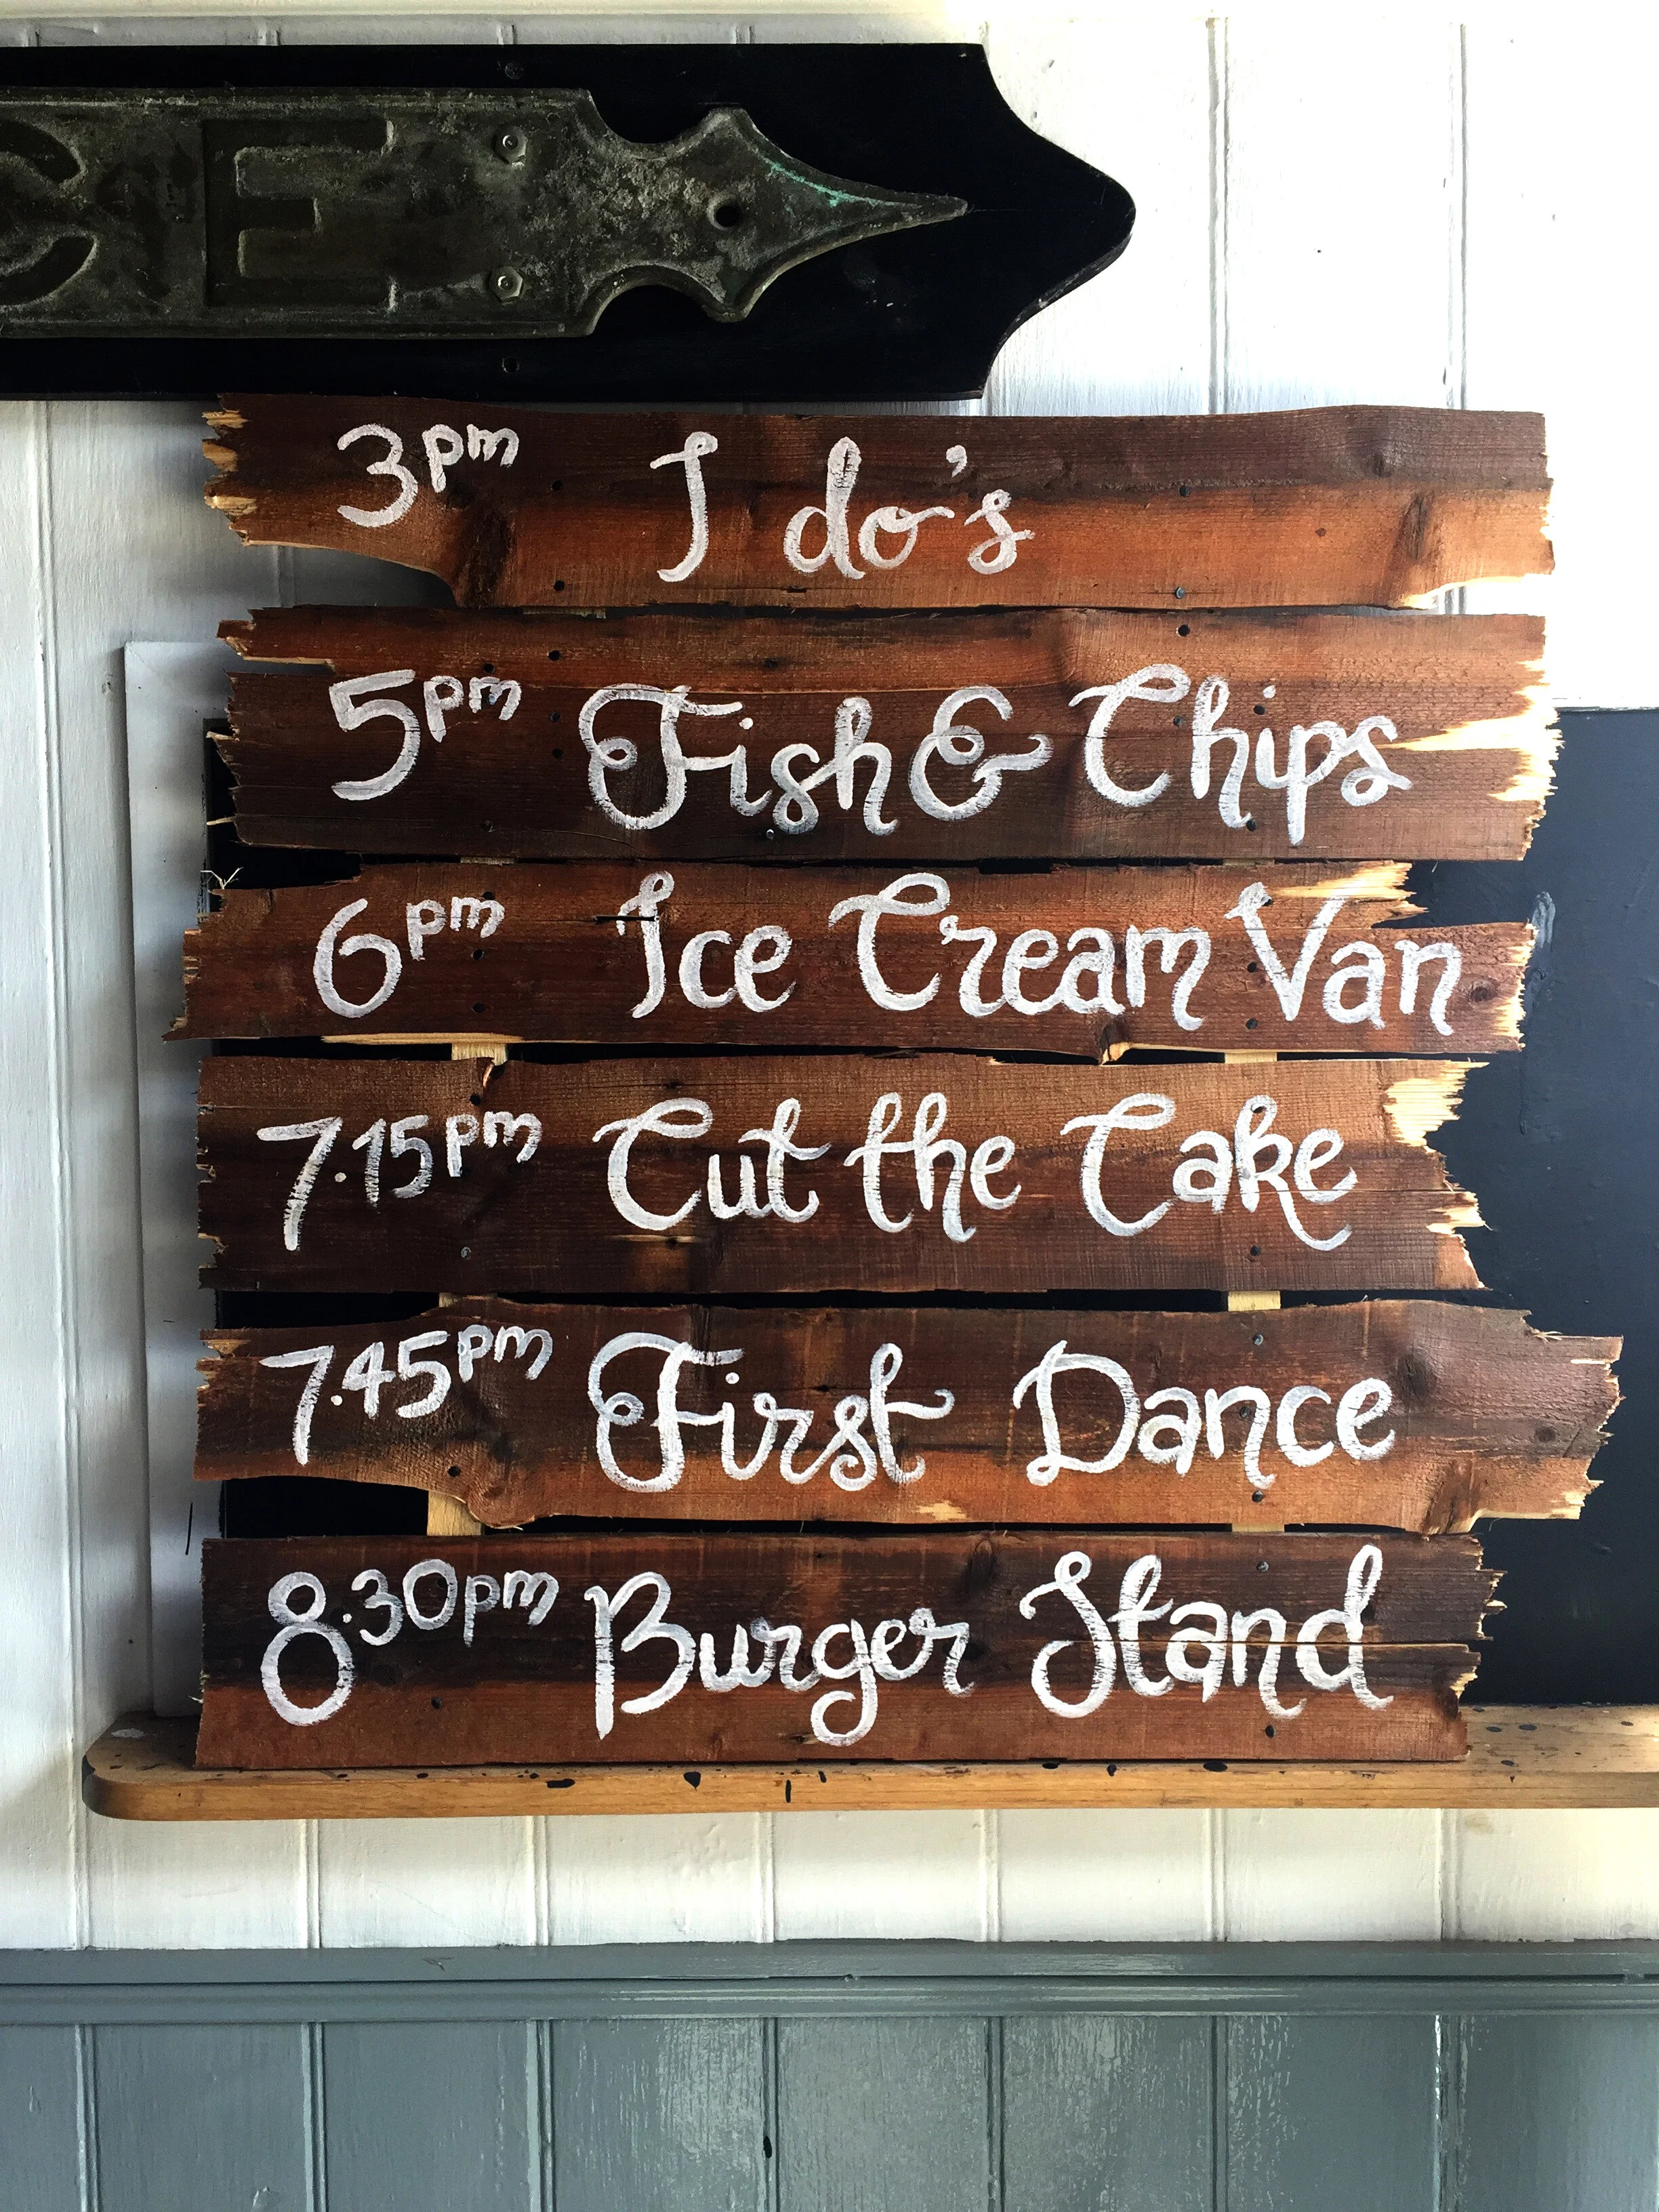 SE
3pm I do's
5pm Fish & Chips
6pm Ice Cream Van
7.15pm Cut the Cake
7.45pm First Dance
8.30pm Burger Stand